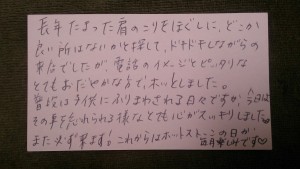 長年たまった肩のこりをほぐしに、どこか
良い所はないかと探して、ドキドキしながらの
来店でしたが、電話のイメージとピッタリな
とてもおだやかな方で、ホッとしました。
普段は子供にふりまわされる日々ですが、今日は
その事を忘れられる様なとても心がスッキリしました♥
また必ず来ます！これからはホットストーンの日が
毎月楽しみです♡